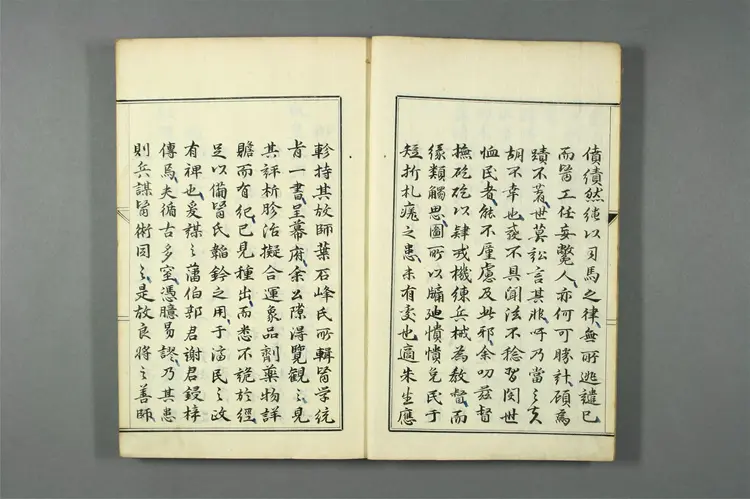 僨績然繩以司馬之律無所逃譴已
而醫工任妄斃人亦何可勝計顧爲
蹟不著世莫訟言其非吁乃當之
胡不幸也不具聞法不稔習閔世
恤民者能不廑慮及此邪余叨茲督
撫矻矻以肄戎機練兵械為教督而
緣類觸思圖所以牖廸憒憒免民于
短折札瘥之患未有也適朱生應
軫持其故師葉石峰氏所輯醫學統
旨一書呈幕府余公隙得覽觀之見
其評析胗治擬合運象品劑藥物詳
贍而有紀已見種出而悉不詭於經
足以備醫氏韜鈐之用于濟民之政
有裨也爰謀之藩伯郡君謝君鋟梓
傳焉夫循古多窒憑臆易謬乃其患
則兵謀醫術同之是故良將之善師